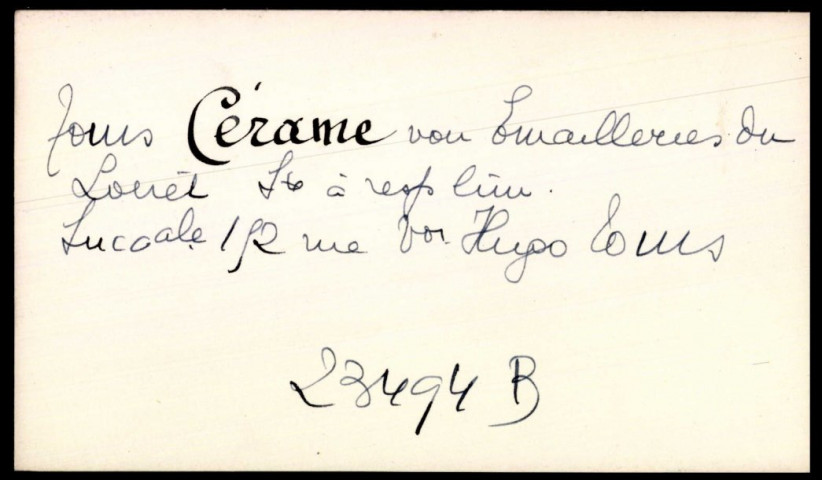 Tours Cérame voir Emailleries du
Loiret Sté à resp lim.
Succale 152 rue Vor Hugo Tours
23494 B